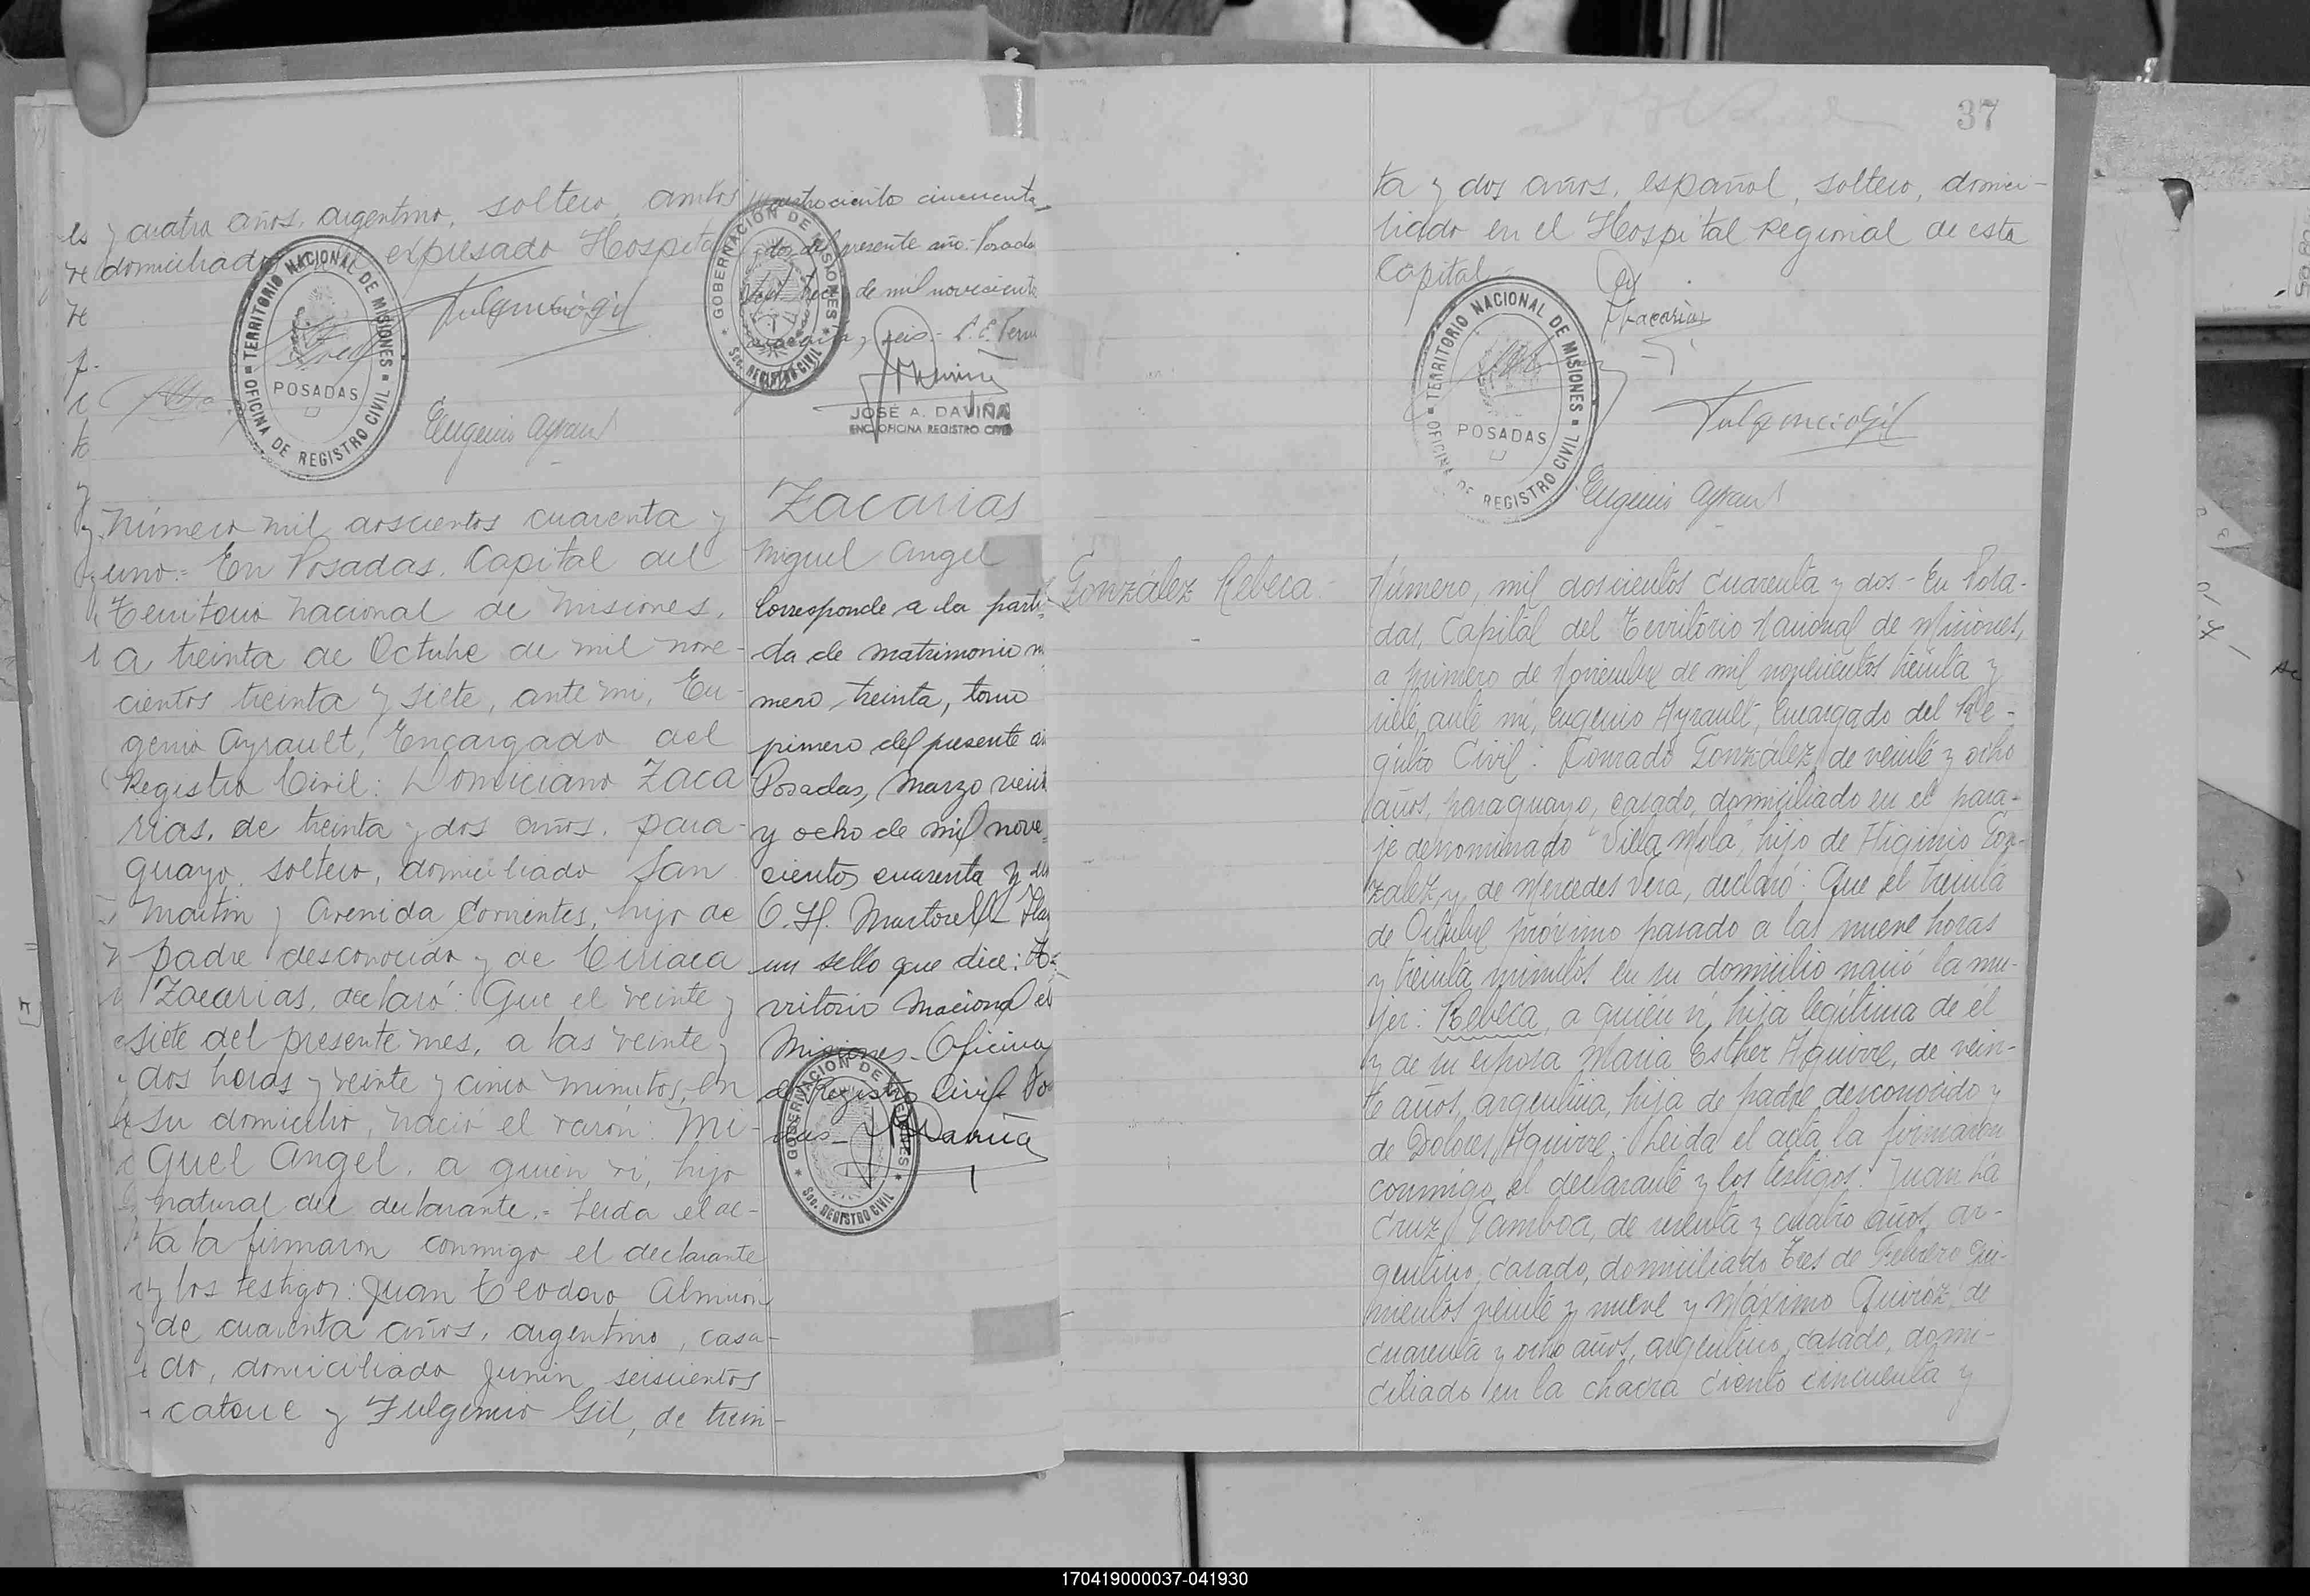 y cuatro años, argentino, soltero, ambos
domiciliados expresado Hospital
TERRITORIO NACIONAL DE MISIONES
POSADAS
OFICINA DE REGISTRO CIVIL
Fulgencio Gil
Eugenio Ayrault
cuatrociento cincuenta
dos del presente año.- Posada
de mil noveciento
y seis.-
GOBERNACIÓN DE MISIONES
Sec. REGISTRO CIVIL
JOSÉ A. DAVIÑA
ENC. OFICINA REGISTRO CIVIL
Número mil doscientos cuarenta y
uno.= En Posadas, Capital del
Territorio Nacional de Misiones,
a treinta de Octubre de mil nove-
cientos treinta y siete, ante mi, Eu-
genio Ayrault, Encargado del
Registro Civil: Domiciano Zaca
rias, de treinta y dos años, para-
guayo, soltero, domiciliado San
Martin y Avenida Corrientes, hijo de
padre desconocido y de Ciriaca
Zacarias, declaró: Que el veinte y
siete del presente mes, a las veinte y
dos horas y veinte y cinco minutos, en
su domicilio, nació el varón: Mi-
guel Angel, a quien vi, hijo
natural del declarante.= Leida el ac-
ta la firmaron conmigo el declarante
y los testigos: Juan Teodoro Almirón
de cuarenta años, argentino, casa-
do, domiciliado Junin seiscientos
catorce y Fulgencio Gil, de trein-
Zacarias
Miguel Angel
Corresponde a la parti-
da de matrimonio nú
mero treinta, tomo
primero del presente
Posadas, Marzo vein
y ocho de mil nove-
cientos cuarenta y
O. H. Martorell
un sello que dice:
rritorio Nacional de
Misiones - Oficina
de Registro Civil
GOBERNACION DE MISIONES
Sec. REGISTRO CIVIL
37
ta y dos años, español, soltero, domici-
liado en el Hospital Regional de esta
Capital.-
Zacarias
TERRITORIO NACIONAL DE MISIONES
POSADAS
OFICINA DE REGISTRO CIVIL
Fulgencio Gil
Eugenio Ayrault
González Rebeca.
Número, mil doscientos cuarenta y dos - En Posa-
das, Capital del Territorio Nacional de Misiones,
a primero de Noviembre de mil novecientos treinta y
siete, ante mí, Eugenio Ayrault, Encargado del Re-
gistro Civil: Conrado González, de veinte y ocho
años, paraguayo, casado, domiciliado en el para-
je denominado "Villa Mola", hijo de Higinio Gon-
zalez, y de Mercedes Vera, declaró: Que el treinta
de Octubre próximo pasado a las nueve horas
y treinta minutos en su domicilio nació la mu-
jer: Rebeca, a quién ví, hija legítima de él
y de su esposa Maria Esther Aguirre, de vein-
te años, argentina, hija de padre desconocido y
de Dolores Aguirre; Leida el acta la firmaron
conmigo el declarante y los testigos: Juan La
Cruz Gamboa, de sesenta y cuatro años, ar-
gentino, casado, domiciliado Tres de Febrero Qui-
nientos veinte y nueve y Máximo Quiróz, de
cuarenta y ocho años, argentino, casado, domi-
ciliado en la chacra ciento cincuenta y
170419000037-041930